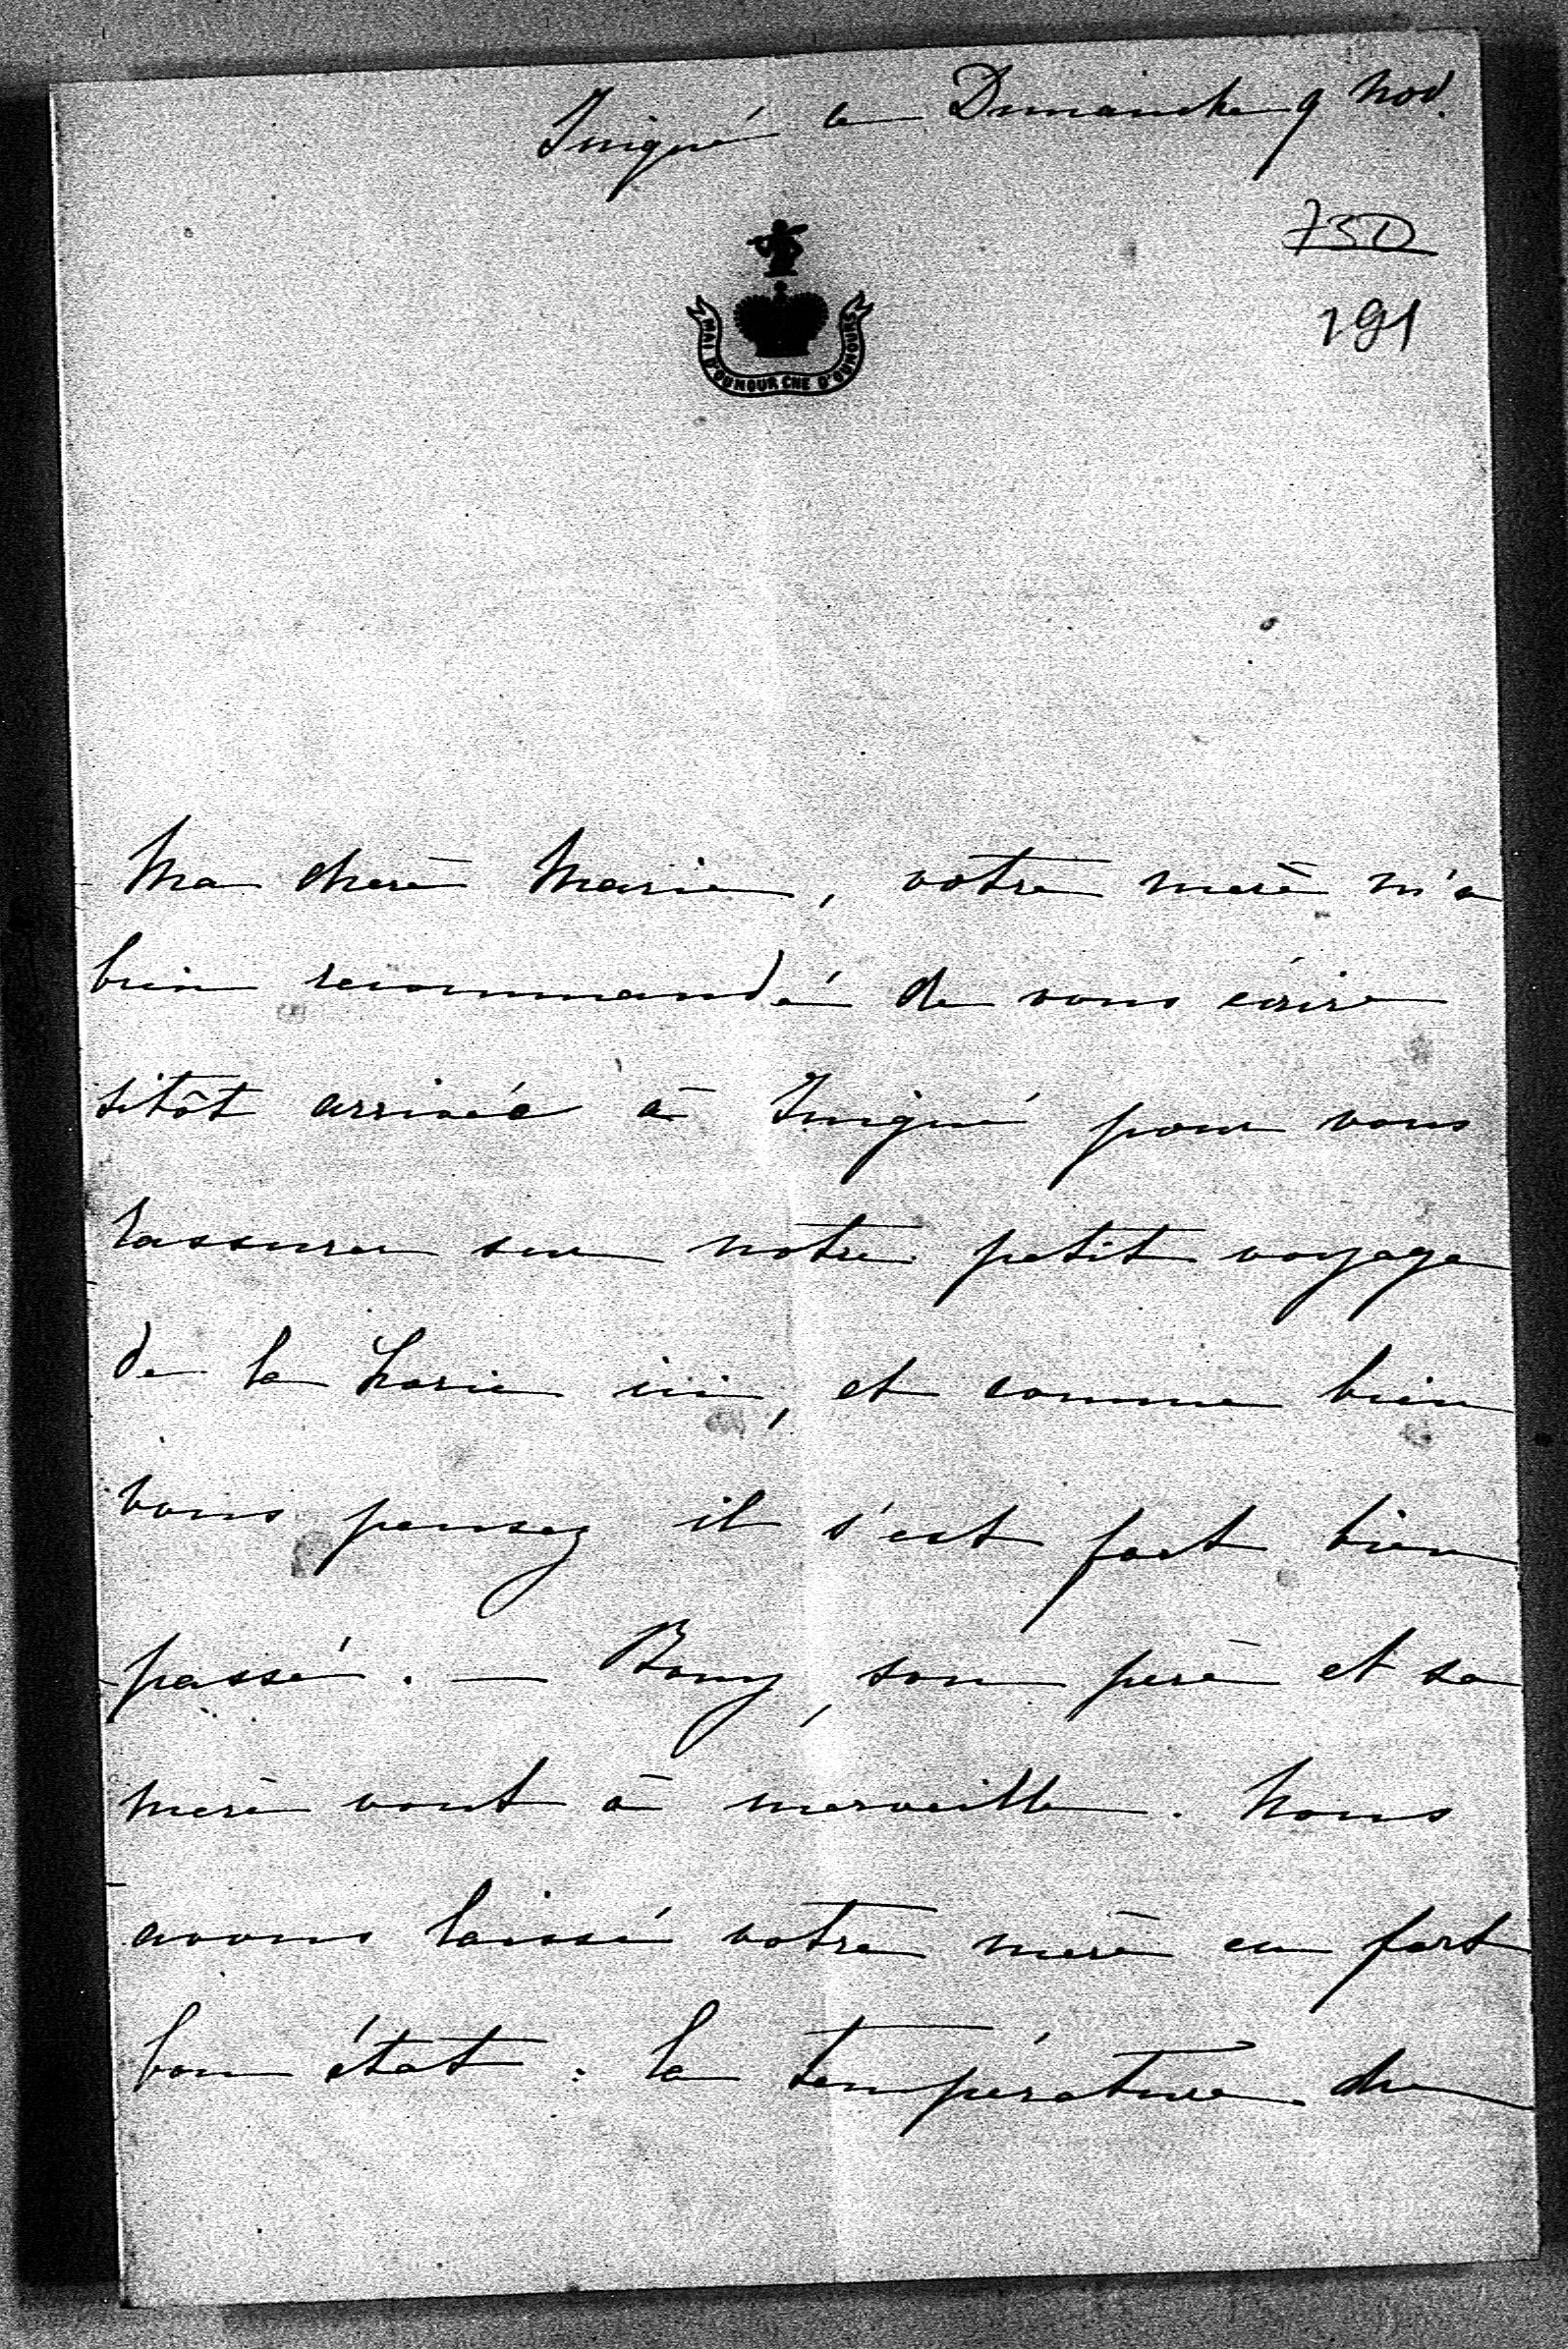 Juigné le Dimanche 9 Nov.
73D
191
MAI D'OUNOUR CHE D'OUNOURS
Ma cherè Marie, votre merè m'a
bien recommandé de vous écrire
sitôt arrivée à Juigné pour vous
rassurer sur notre petit voyage
de la Lorie ici, et comme bien
vous pensez il s'est fort bien
passé. — Bony, son perè et sa
merè vont à merveille. Nous
avons laissé votre merè en fort
bon état : la température du